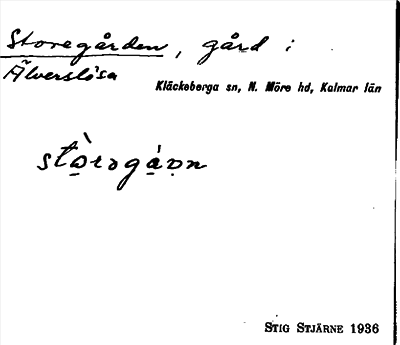 Storegården, gård i
Älverslösa
Kläckeberga sn, N. Möre hd, Kalmar län
stòrəgá̱ṇn
STIG STJÄRNE 1936